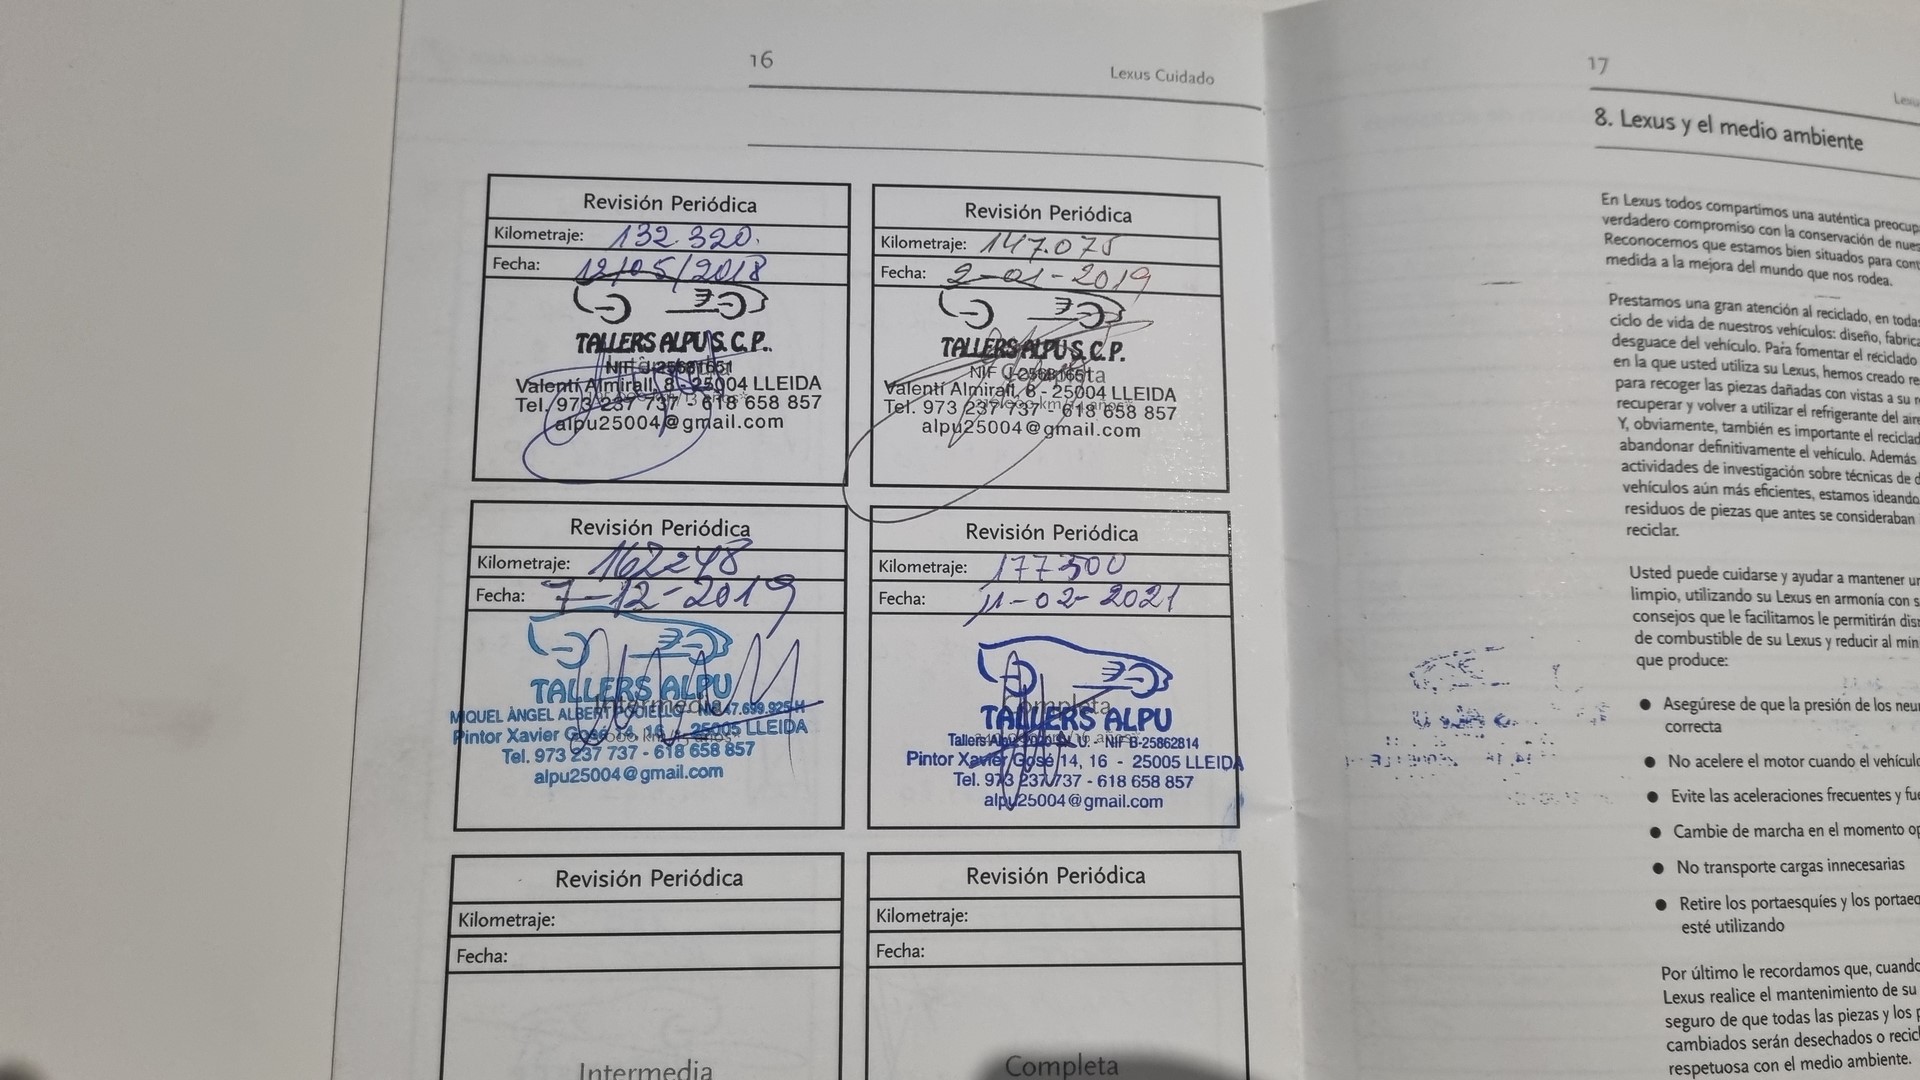 16
Lexus Cuidado
Revisión Periódica
Kilometraje: 132.320.
Fecha: 12/05/2018
TALLERS ALPU S.C.P.
NIF J-25681651
Valentí Almirall, 8 - 25004 LLEIDA
Tel. 973 237 737 - 618 658 857
alpu25004@gmail.com
Revisión Periódica
Kilometraje: 147.075
Fecha: 2-01-2019
TALLERS ALPU S.C.P.
NIF J-25681651
Valentí Almirall, 8 - 25004 LLEIDA
Tel. 973 237 737 - 618 658 857
alpu25004@gmail.com
Revisión Periódica
Kilometraje: 162248
Fecha: 7-12-2019
TALLERS ALPU
Intermedia
MIQUEL ÀNGEL ALBERT
Pintor Xavier Gosé 14, 16 - 25005 LLEIDA
Tel. 973 237 737 - 618 658 857
alpu25004@gmail.com
Revisión Periódica
Kilometraje: 177300
Fecha: 11-02-2021
Completa
TALLERS ALPU
Tallers Alpu S.L.U. - NIF B-25862814
Pintor Xavier Gosé 14, 16 - 25005 LLEIDA
Tel. 973 237 737 - 618 658 857
alpu25004@gmail.com
Revisión Periódica
Kilometraje:
Fecha:
Intermedia
Revisión Periódica
Kilometraje:
Fecha:
Completa
17
8. Lexus y el medio ambiente
En Lexus todos compartimos una auténtica
verdadero compromiso con la conservación de
Reconocemos que estamos bien situados para
medida a la mejora del mundo que nos rodea.
Prestamos una gran atención al reciclado, en
ciclo de vida de nuestros vehículos: diseño,
desguace del vehículo. Para fomentar el reciclado
en la que usted utiliza su Lexus, hemos creado
para recoger las piezas dañadas con vistas a su
recuperar y volver a utilizar el refrigerante del
Y, obviamente, también es importante el
abandonar definitivamente el vehículo. Además
actividades de investigación sobre técnicas de
vehículos aún más eficientes, estamos ideando
residuos de piezas que antes se consideraban
reciclar.
Usted puede cuidarse y ayudar a mantener
limpio, utilizando su Lexus en armonía con
consejos que le facilitamos le permitirán
de combustible de su Lexus y reducir al
que produce:
● Asegúrese de que la presión de los
correcta
● No acelere el motor cuando el
● Evite las aceleraciones frecuentes y
● Cambie de marcha en el momento
● No transporte cargas innecesarias
● Retire los portaesquíes y los
esté utilizando
Por último le recordamos que, cuando
Lexus realice el mantenimiento de su
seguro de que todas las piezas y los
cambiados serán desechados o
respetuosa con el medio ambiente.